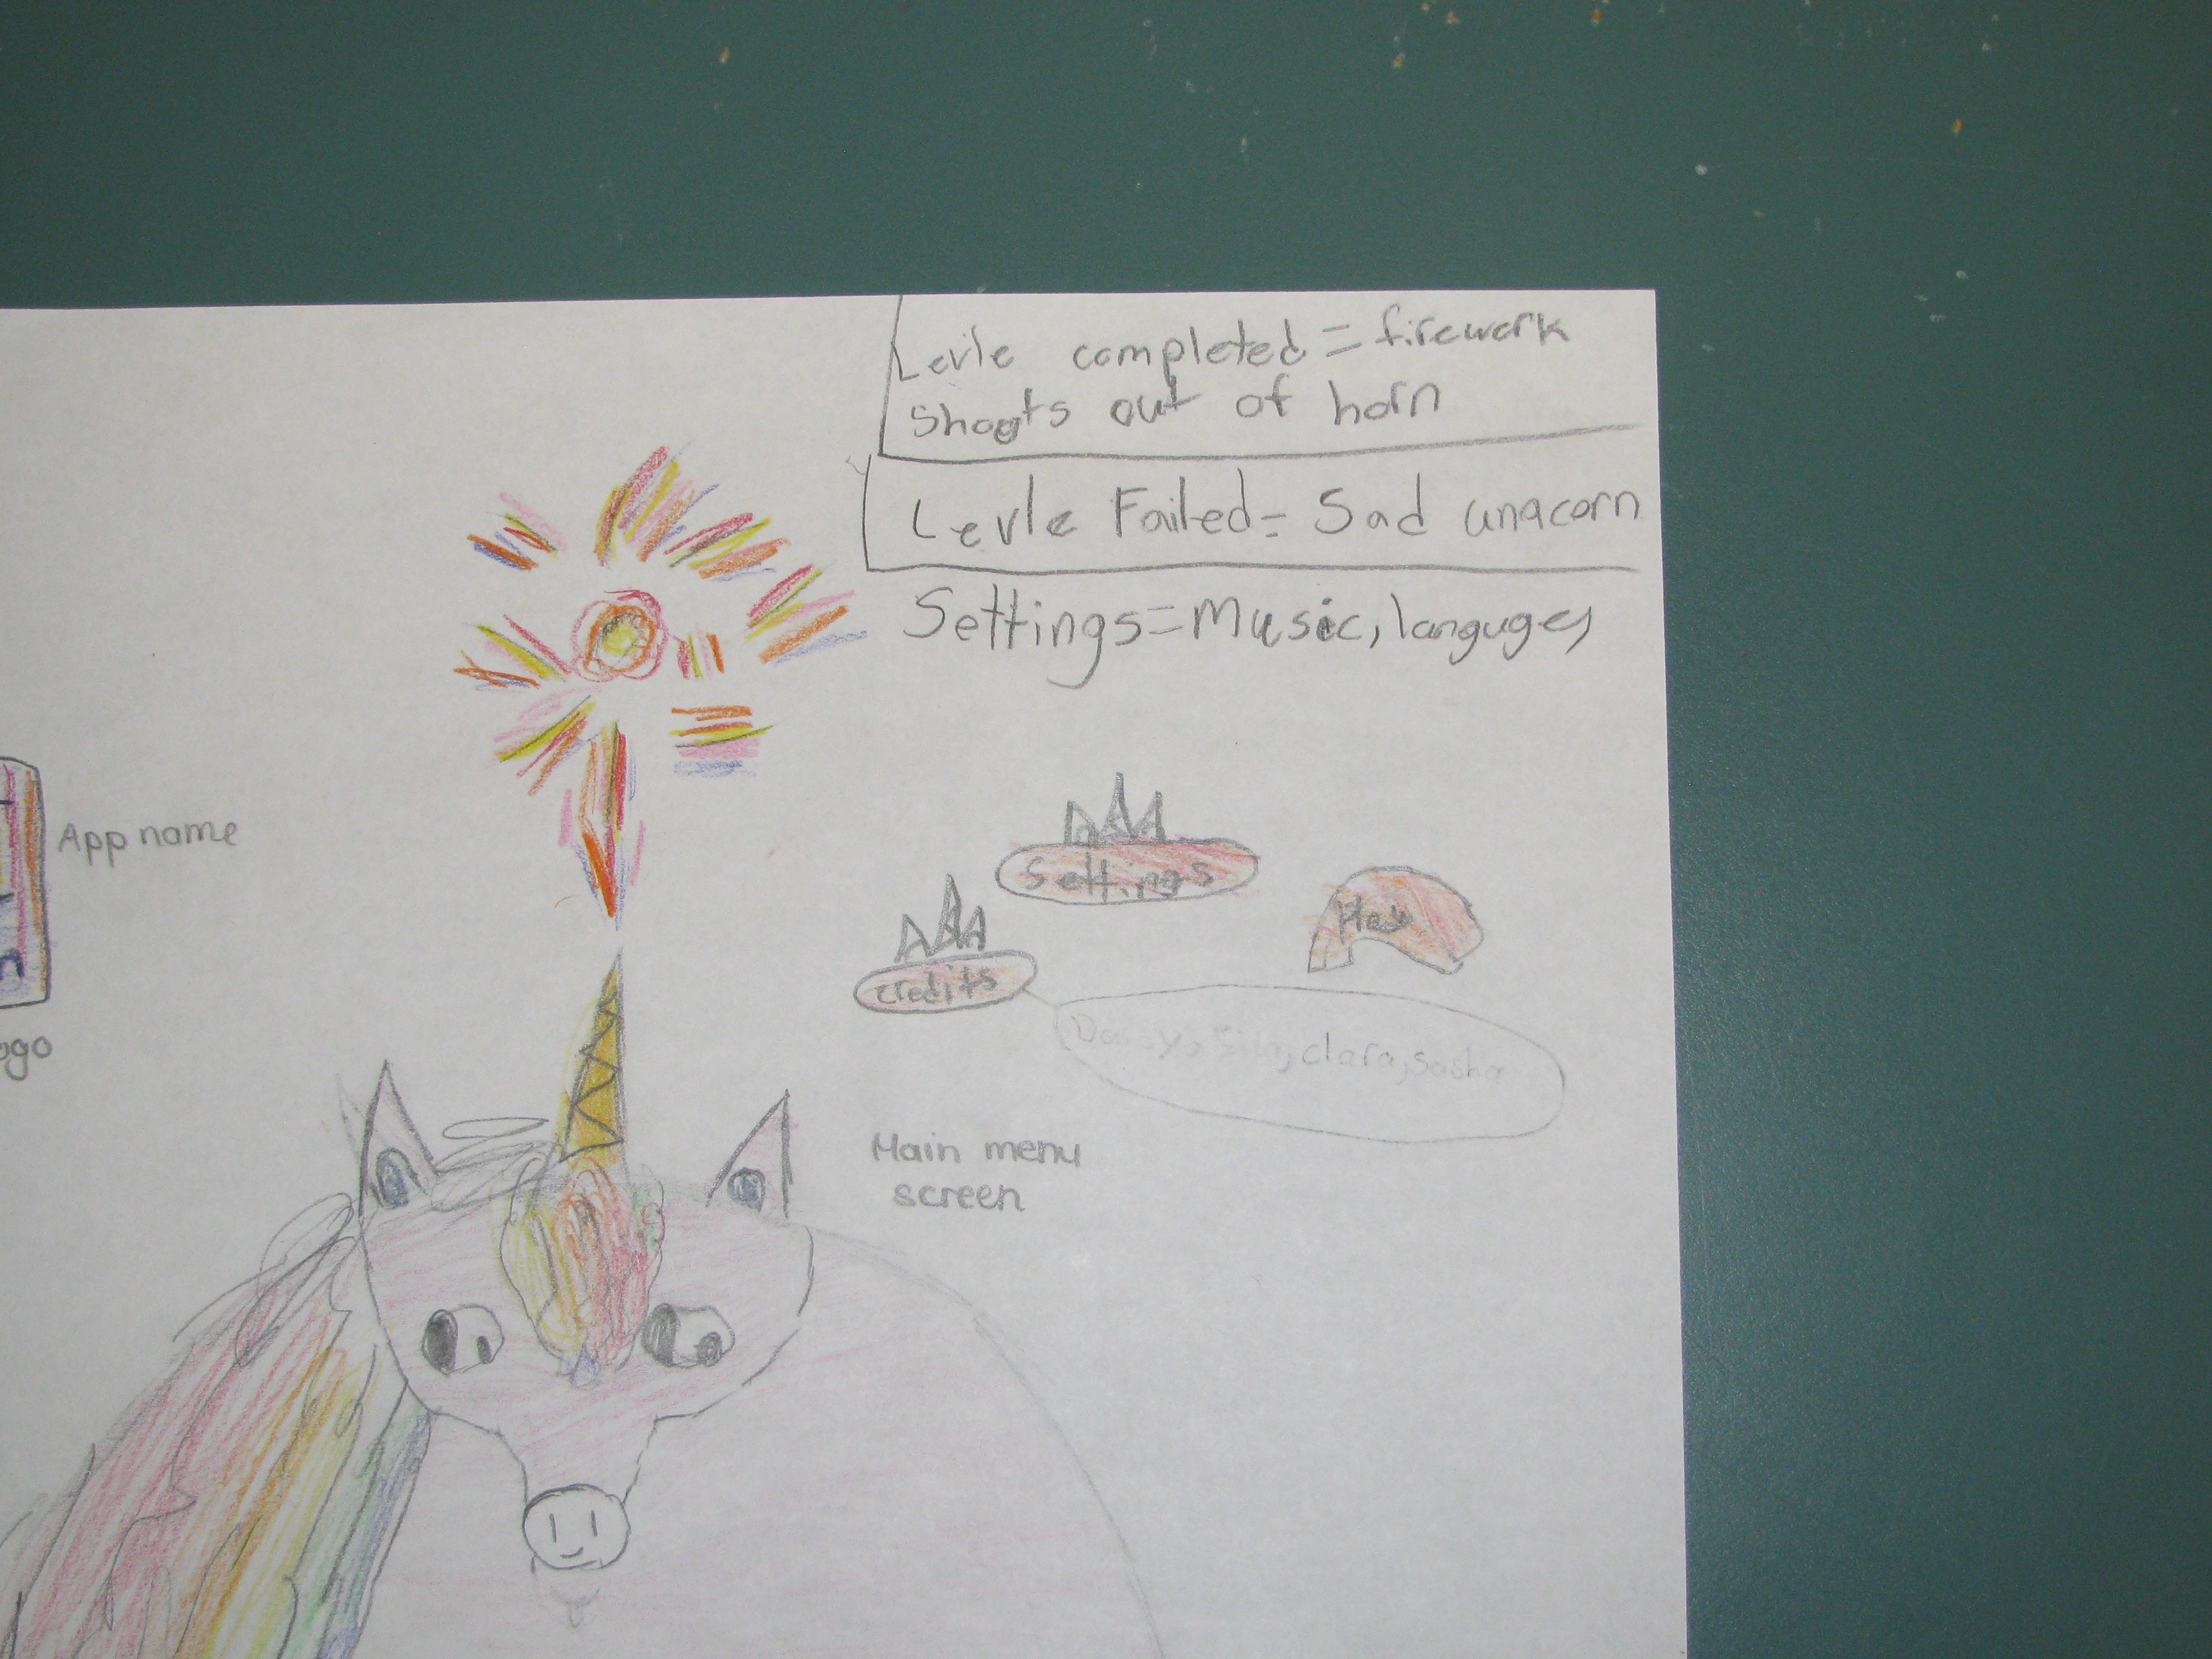 Levle completed = firework
Shoots out of horn
Levle Failed = Sad unacorn
Settings = Music, languges
App name
Settings
Play
credits
Daisy, clara, sasha
Main menu
screen